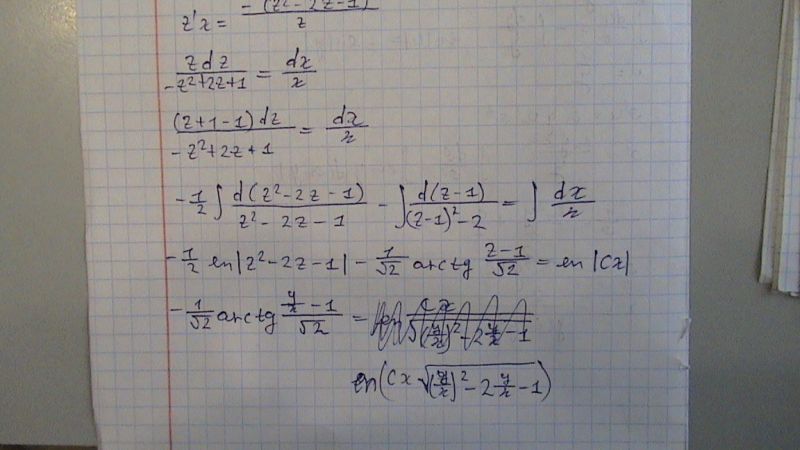 z'x = -(z²-2z-1)/z
zdz/(-z²+2z+1) = dx/x
(z+1-1)dz/(-z²+2z+1) = dx/x
-1/2 ∫ d(z²-2z-1)/(z²-2z-1) - ∫ d(z-1)/((z-1)²-2) = ∫ dx/x
-1/2 ln|z²-2z-1| - 1/√2 arctg (z-1)/√2 = ln|Cx|
-1/√2 arctg (y/x - 1)/√2 =
ln(Cx √((y/x)² - 2 y/x - 1))